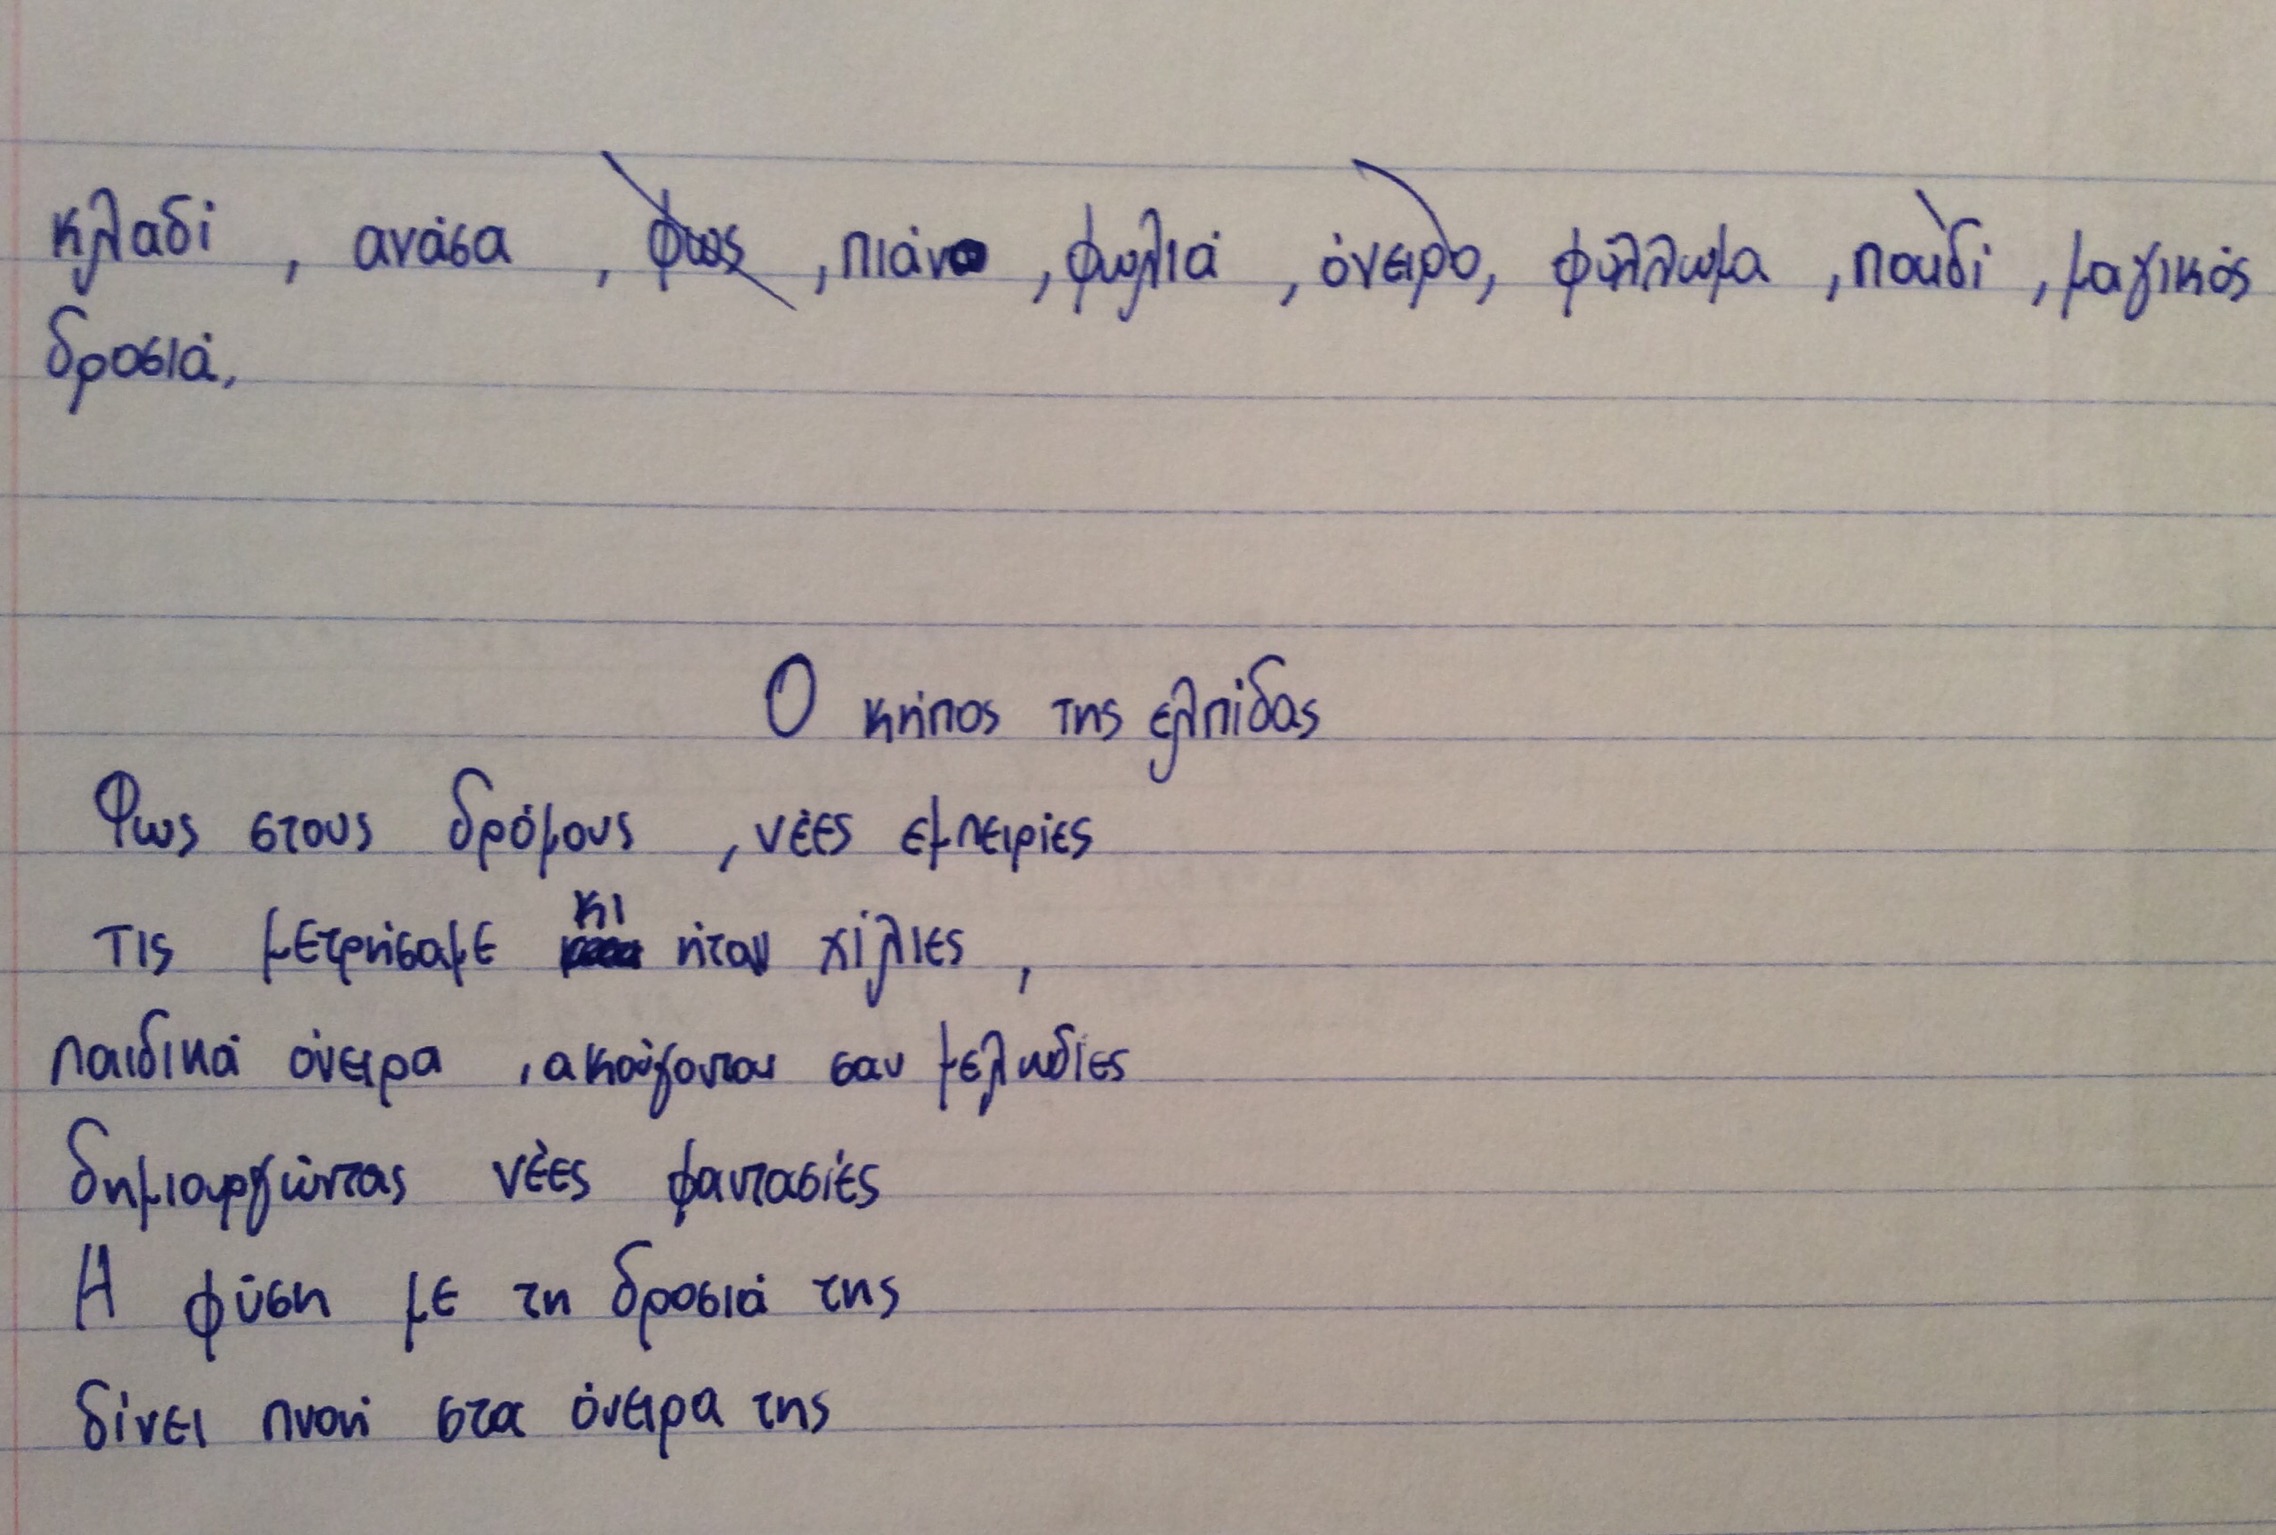 κλαδί , ανάσα , φως , πιάνο , φωλιά , όνειρο, φύλλωμα , παιδί , μαγικός
δροσιά,
Ο κήπος της ελπίδας
Φως στους δρόμους , νέες εμπειρίες
τις μετρήσαμε κι ήταν χίλιες ,
παιδικά όνειρα , ακούγονται σαν μελωδίες
δημιουργώντας νέες φαντασίες
Η φύση με τη δροσιά της
δίνει πνοή στα όνειρα της